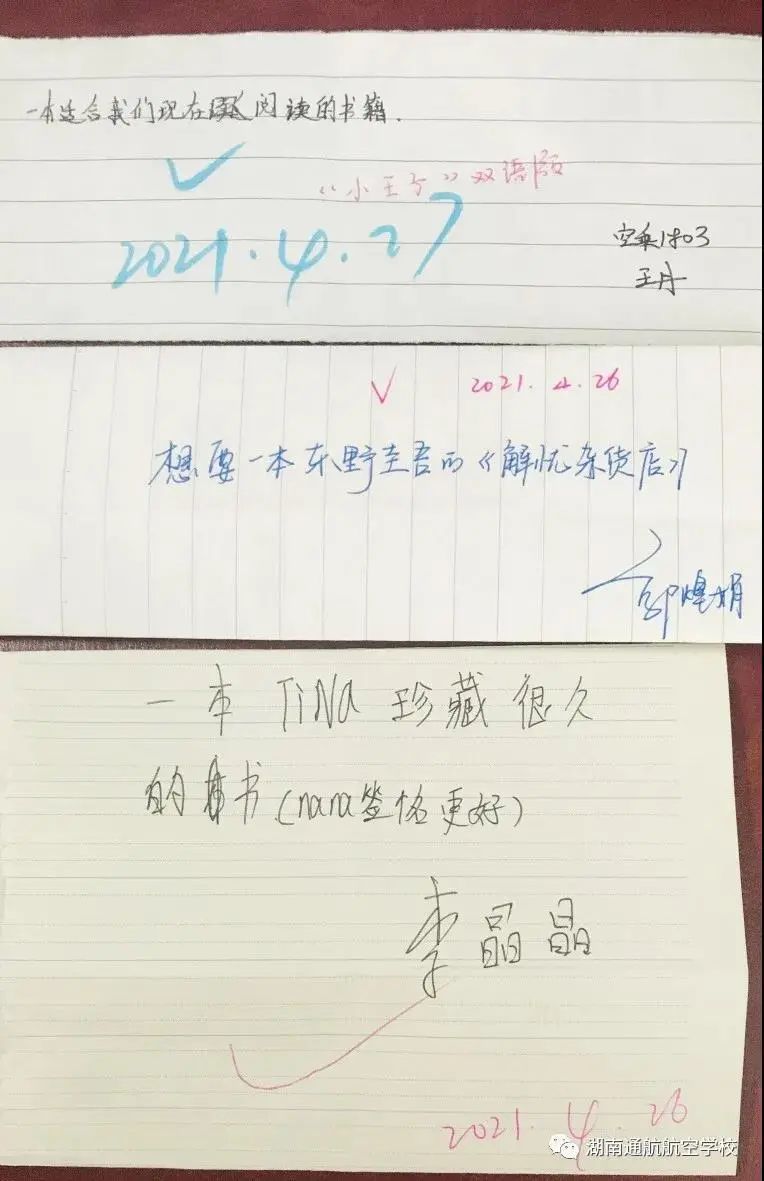 一本适合我们现在阅读的书籍.
《小王子》双语版
2021.4.27
空乘1803
王丹
2021.4.26
想要一本东野圭吾的《解忧杂货店》
邹烨娟
一本 TiNa 珍藏很久
的书(nana签名更好)
李晶晶
2021.4.26
湖南通航航空学校